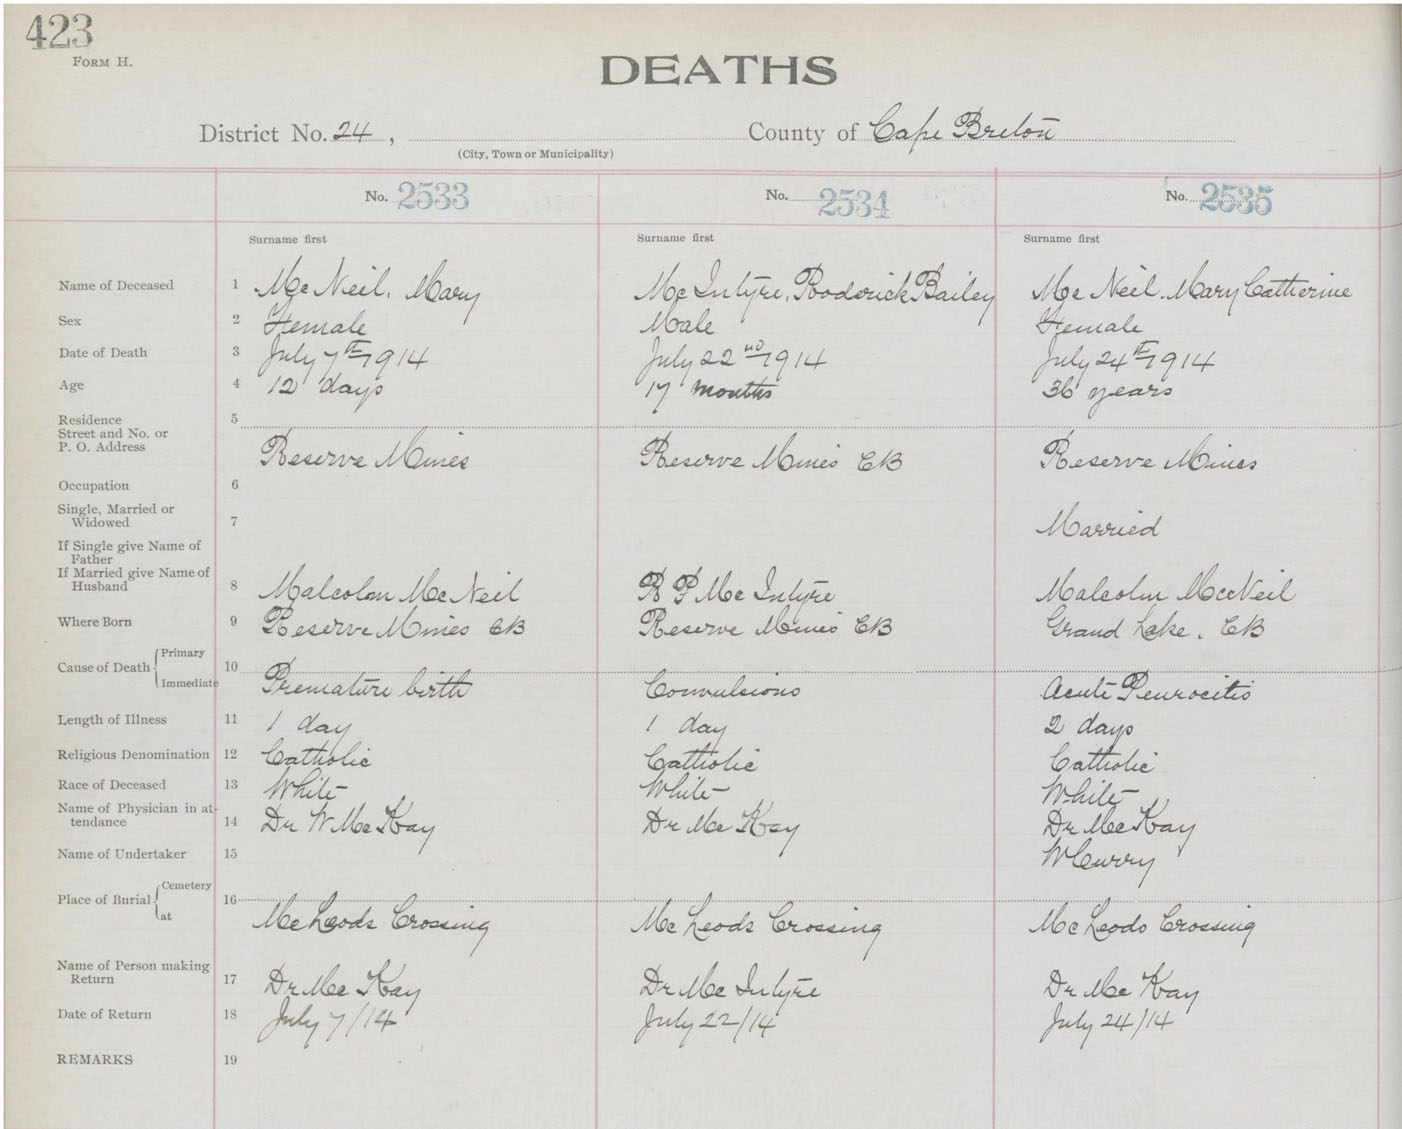 423
FORM H.
DEATHS
District No. 24, County of Cape Breton
(City, Town or Municipality)
No. 2533 No. 2534 No. 2535
Surname first Surname first Surname first
Name of Deceased 1 McNeil, Mary McIntyre, Roderick Bailey McNeil, Mary Catherine
Sex 2 Female Male Female
Date of Death 3 July 7th 1914 July 22nd 1914 July 24th 1914
Age 4 12 days 17 months 36 years
Residence 5
Street and No. or
P. O. Address Reserve Mines Reserve Mines CB Reserve Mines
Occupation 6
Single, Married or
Widowed 7 Married
If Single give Name of
Father
If Married give Name of
Husband 8 Malcolm McNeil R P McIntyre Malcolm McNeil
Where Born 9 Reserve Mines CB Reserve Mines CB Grand Lake, CB
Cause of Death Primary 10
Immediate Premature birth Convulsions Acute
Length of Illness 11 1 day 1 day 2 days
Religious Denomination 12 Catholic Catholic Catholic
Race of Deceased 13 White White White
Name of Physician in at-
tendance 14 Dr W McKay Dr McKay Dr McKay
Name of Undertaker 15 W Curry
Place of Burial Cemetery 16
at McLeods Crossing McLeods Crossing McLeods Crossing
Name of Person making
Return 17 Dr McKay Dr McIntyre Dr McKay
Date of Return 18 July 7/14 July 22/14 July 24/14
REMARKS 19